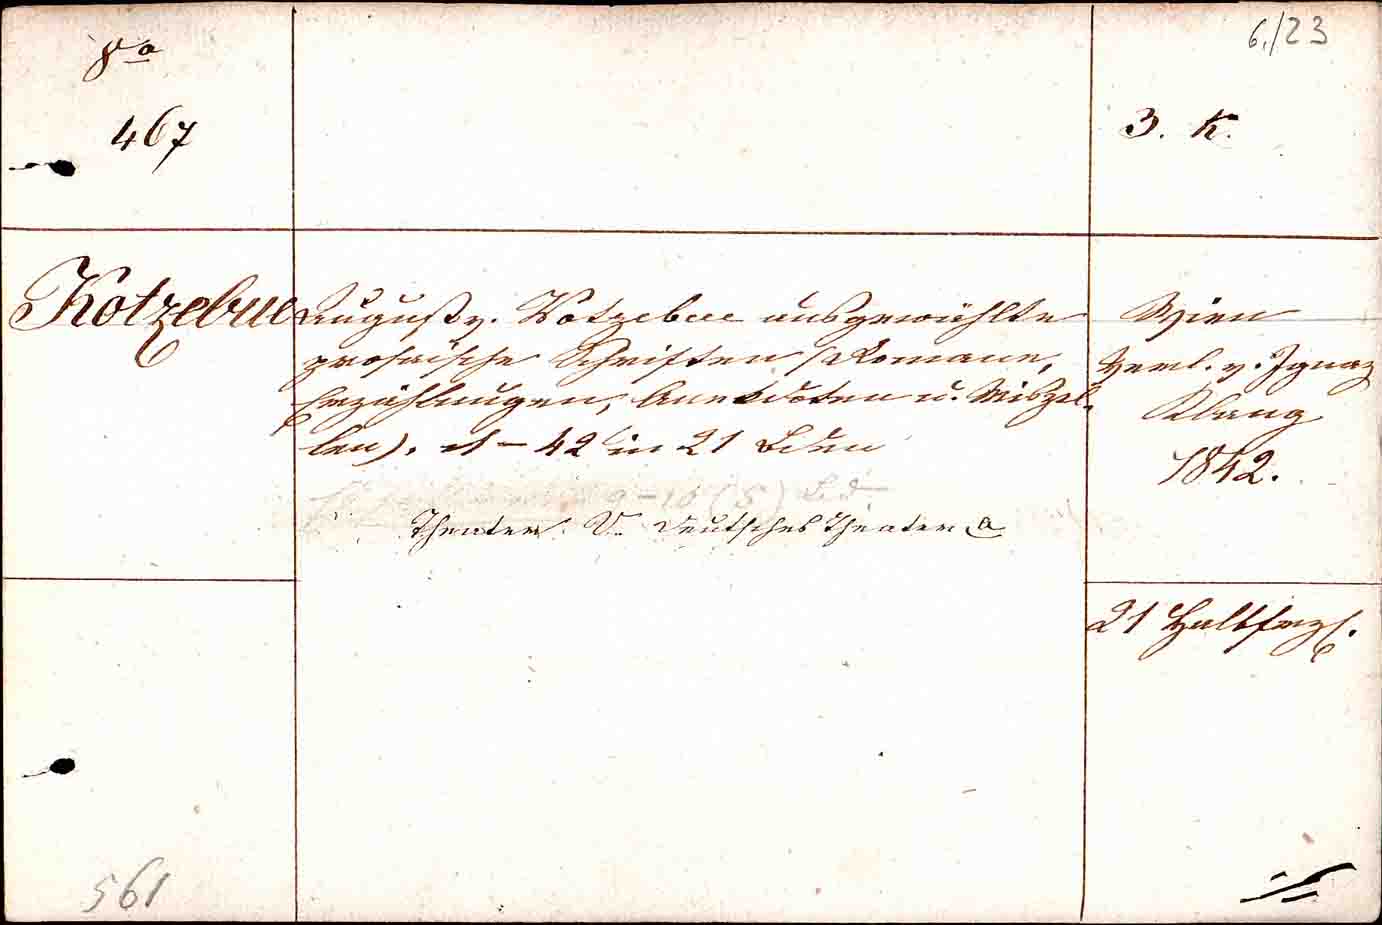 6./23
8º
467
3. K.
Kotzebue
August v. Kotzebue ausgewählte
prosaische Schriften (Romane,
Erzählungen, Anekdoten u. Miszel-
len). 1–42 in 21 Bden
9–10 (5) Bd.
Theater. V. deutsches Theater a
Wien
Verl. v. Ignaz
Klang
1842.
21 Halbfrzb.
561